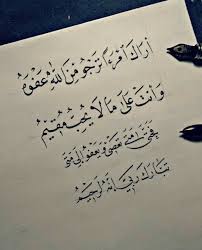 أراك امرءًا ترجو من الله عفوه
وأنت على ما لا يحب مقيم
فحتى متى تعصي ويعفو إلى متى
تبارك ربي إنه لرحيم